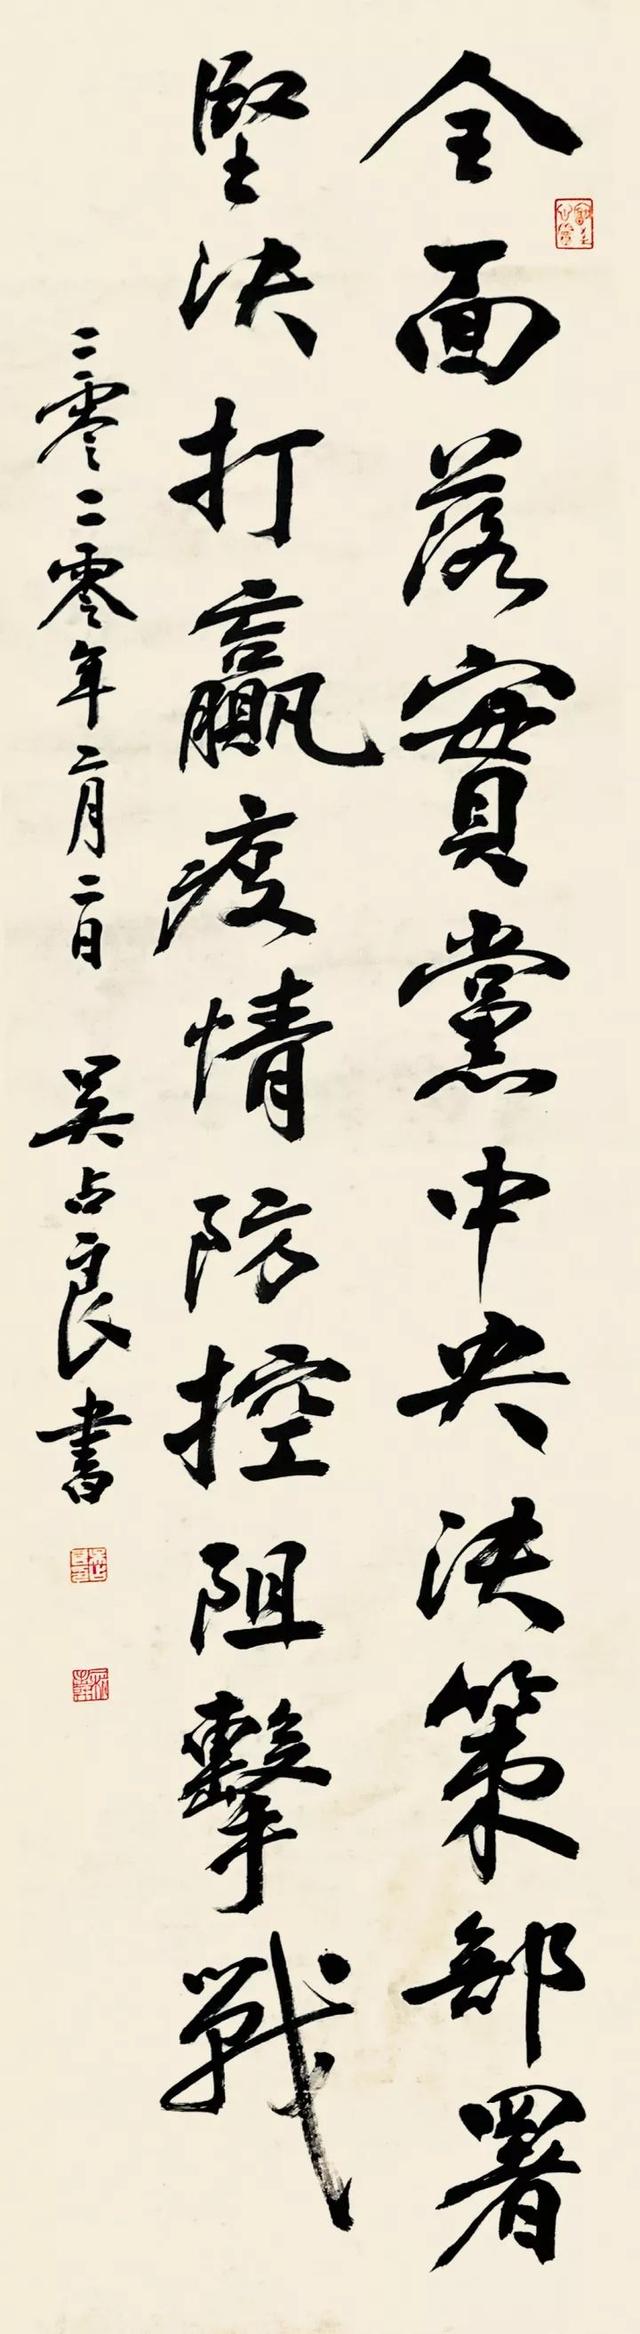 全面落實黨中央決策部署
堅決打贏疫情防控阻擊戰
二零二零年二月二日 吴占良書